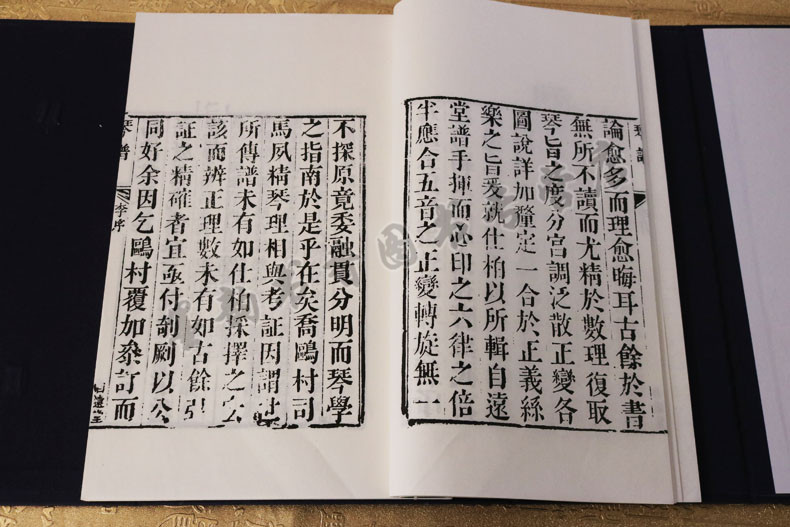 論愈多而理愈晦耳古餘於書
無所不讀而尤精於數理復取
琴旨之度分宮調泛散正變各
圖說詳加釐定一合於正義絲
樂之旨爰就仕柏以所輯自遠
堂譜手揮而心印之六律之倍
半應合五音之正變轉旋無一
不探原竟委融貫分明而琴學
之指南於是乎在矣喬鷗村司
馬夙精琴理相與考証因謂士
所傳譜未有如仕柏採擇之公
該而辨正理數未有如古餘引
証之精確者宜亟付剞劂以公
同好余因乞鷗村覆加叅訂而
琴譜
李序
自遠堂